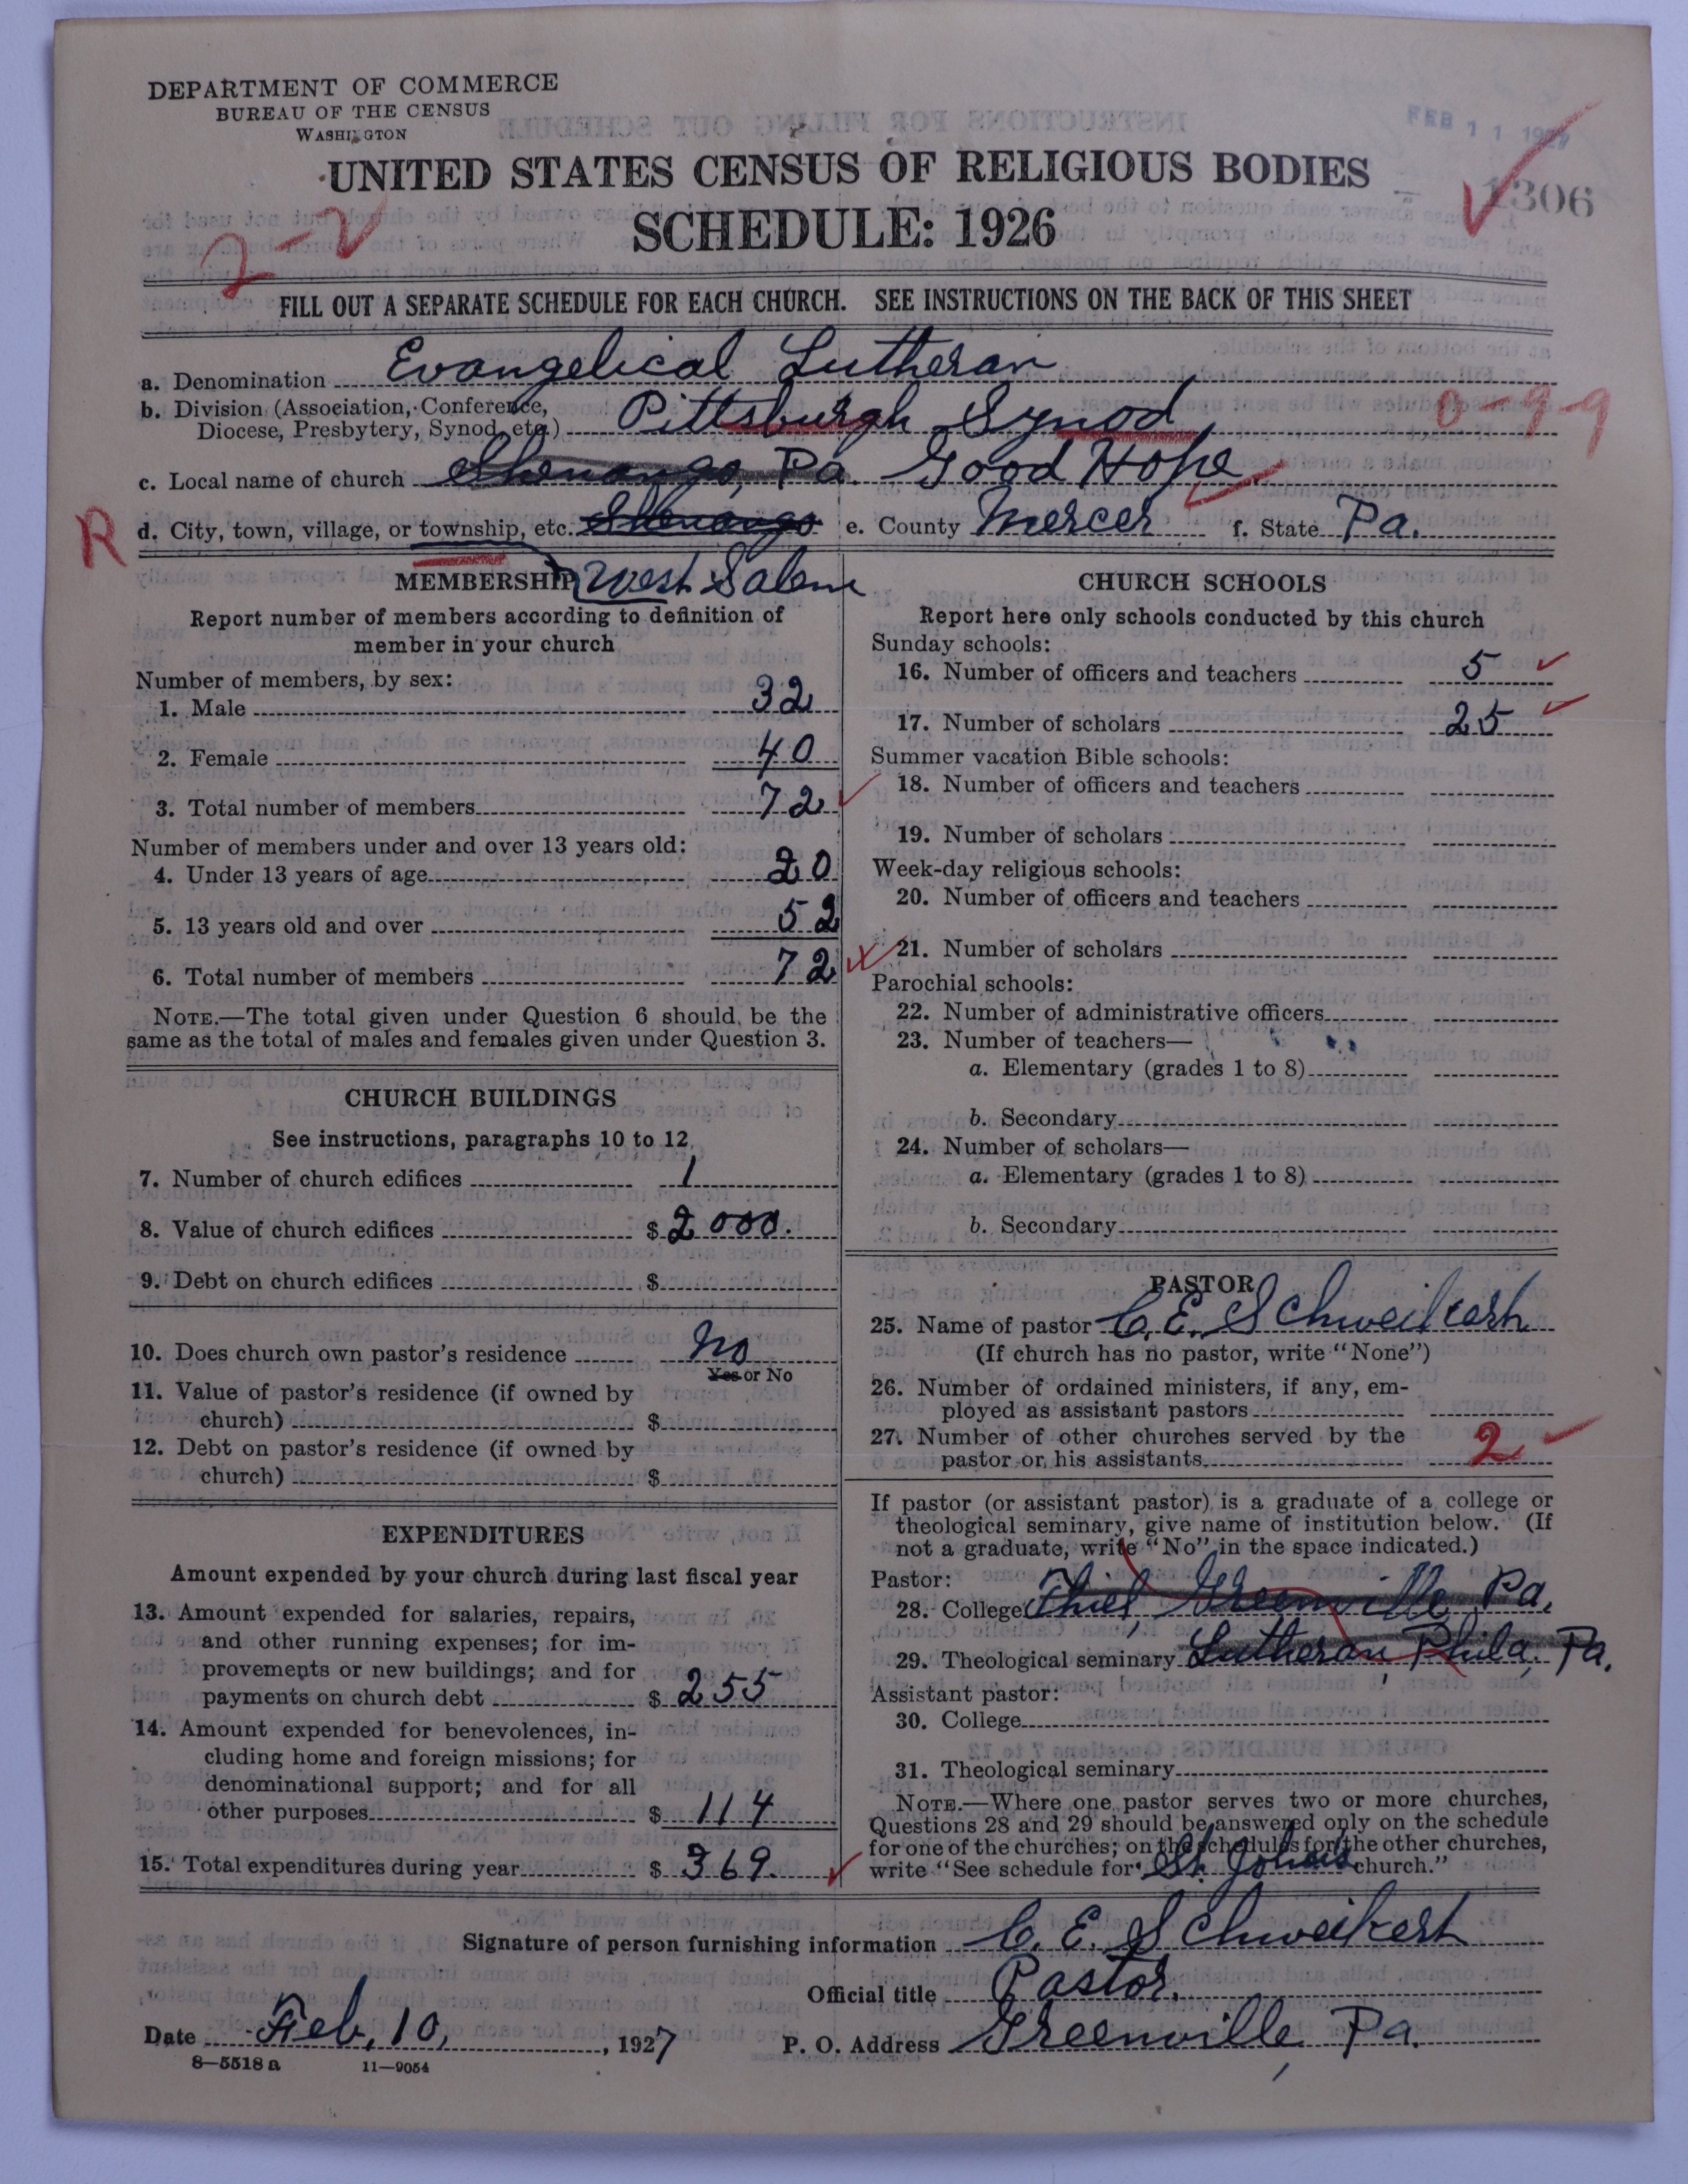 DEPARTMENT OF COMMERCE
BUREAU OF THE CENSUS
WASHINGTON
FEB 11 1927
UNITED STATES CENSUS OF RELIGIOUS BODIES
1306
SCHEDULE: 1926
2-2
FILL OUT A SEPARATE SCHEDULE FOR EACH CHURCH. SEE INSTRUCTIONS ON THE BACK OF THIS SHEET
a. Denomination Evangelical Lutheran
b. Division (Association, Conference, Diocese, Presbytery, Synod, etc.) Pittsburgh Synod
0-9-9
c. Local name of church Shenango, Pa. Good Hope
R
d. City, town, village, or township, etc. Shenango e. County Mercer f. State Pa.
West Salem
MEMBERSHIP
Report number of members according to definition of
member in your church
Number of members, by sex:
1. Male 32
2. Female 40
3. Total number of members 72
Number of members under and over 13 years old:
4. Under 13 years of age 20
5. 13 years old and over 52
6. Total number of members 72
NOTE.—The total given under Question 6 should be the
same as the total of males and females given under Question 3.
CHURCH BUILDINGS
See instructions, paragraphs 10 to 12
7. Number of church edifices 1
8. Value of church edifices $ 2000.
9. Debt on church edifices $
10. Does church own pastor's residence No
Yes or No
11. Value of pastor's residence (if owned by
church) $
12. Debt on pastor's residence (if owned by
church) $
EXPENDITURES
Amount expended by your church during last fiscal year
13. Amount expended for salaries, repairs,
and other running expenses; for im-
provements or new buildings; and for
payments on church debt $ 255
14. Amount expended for benevolences, in-
cluding home and foreign missions; for
denominational support; and for all
other purposes $ 114
15. Total expenditures during year $ 369.
CHURCH SCHOOLS
Report here only schools conducted by this church
Sunday schools:
16. Number of officers and teachers 5
17. Number of scholars 25
Summer vacation Bible schools:
18. Number of officers and teachers
19. Number of scholars
Week-day religious schools:
20. Number of officers and teachers
21. Number of scholars
Parochial schools:
22. Number of administrative officers
23. Number of teachers—
a. Elementary (grades 1 to 8)
b. Secondary
24. Number of scholars—
a. Elementary (grades 1 to 8)
b. Secondary
PASTOR
25. Name of pastor C. E. Schweikert
(If church has no pastor, write "None")
26. Number of ordained ministers, if any, em-
ployed as assistant pastors
27. Number of other churches served by the
pastor or his assistants 2
If pastor (or assistant pastor) is a graduate of a college or
theological seminary, give name of institution below. (If
not a graduate, write "No" in the space indicated.)
Pastor:
28. College Thiel, Greenville Pa.
29. Theological seminary Lutheran, Phila, Pa.
Assistant pastor:
30. College
31. Theological seminary
NOTE.—Where one pastor serves two or more churches,
Questions 28 and 29 should be answered only on the schedule
for one of the churches; on the schedules for the other churches,
write "See schedule for St. Johns church."
Signature of person furnishing information C. E. Schweikert
Official title Pastor.
Date Feb, 10, 1927 P. O. Address Greenville, Pa.
8—5518 a 11—9054